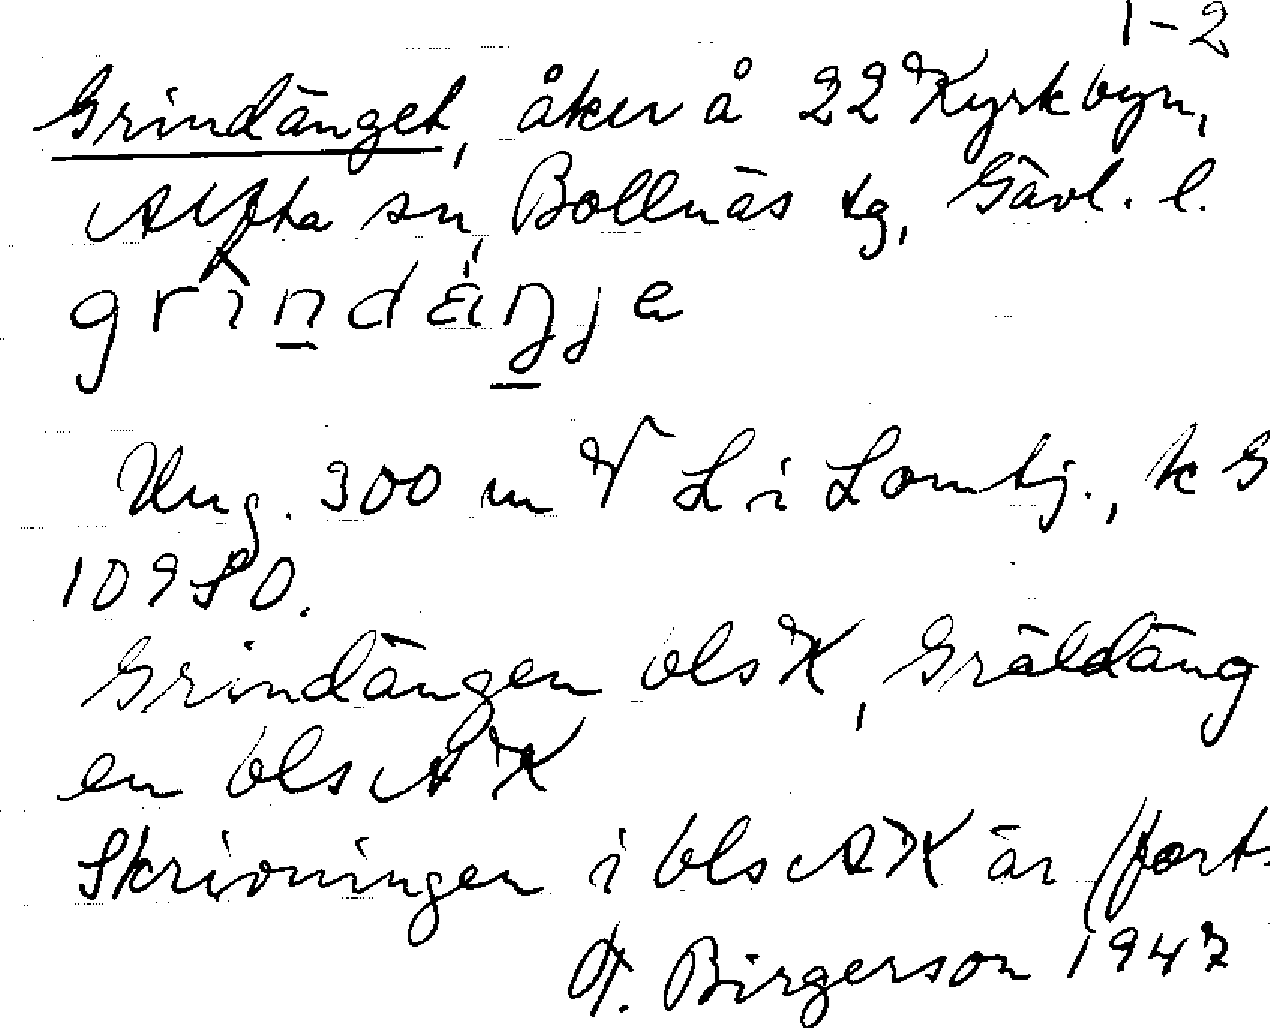 1-2
Grindänget, åker å 22 Kyrkbyn,
Alfta sn, Bollnäs tg, Gävl. l.
grindäŋje
Ung. 300 m V L i Lomtj., k G
109 SO.
Grindängen bls K, Gräldäng
en bls AK
Skrivningen i bls AK är (fort.
F. Birgerson 1947